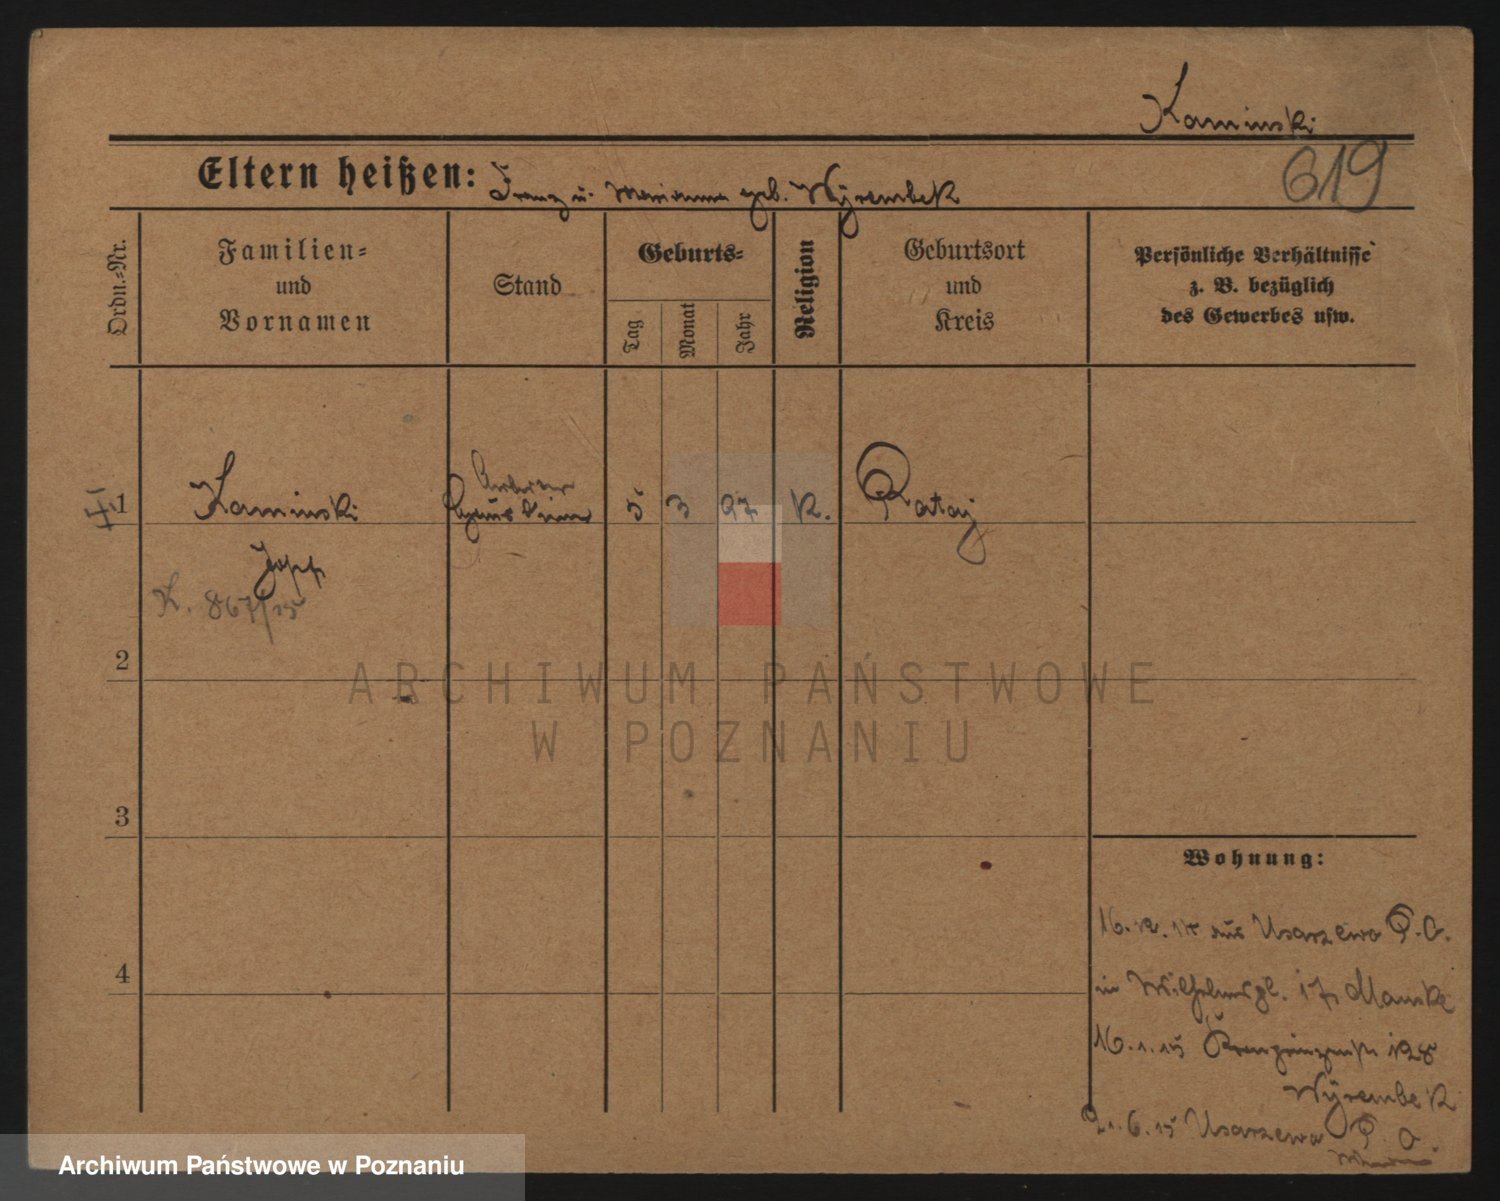 Kaminski
619
Eltern heißen: Franz u. Marianna geb. Wyrembek
Ordn.-Nr.
Familien-
und
Vornamen
Stand
Geburts-
Tag
Monat
Jahr
Religion
Geburtsort
und
Kreis
Persönliche Verhältnisse
z. B. bezüglich
des Gewerbes usw.
Arbeiter
1 Kaminski 5 3 97 K. Rataj
Josef
K. 867/15
2
ARCHIWUM PAŃSTWOWE
W POZNANIU
3
Wohnung:
16.12.14 aus Usarzewo P. O.
4
in Wilhelmspl. 17, Manske
16.1.15 Kronprinzenstr 128
Wyrembek
21.6.15 Usarzewo P. O.
Archiwum Państwowe w Poznaniu